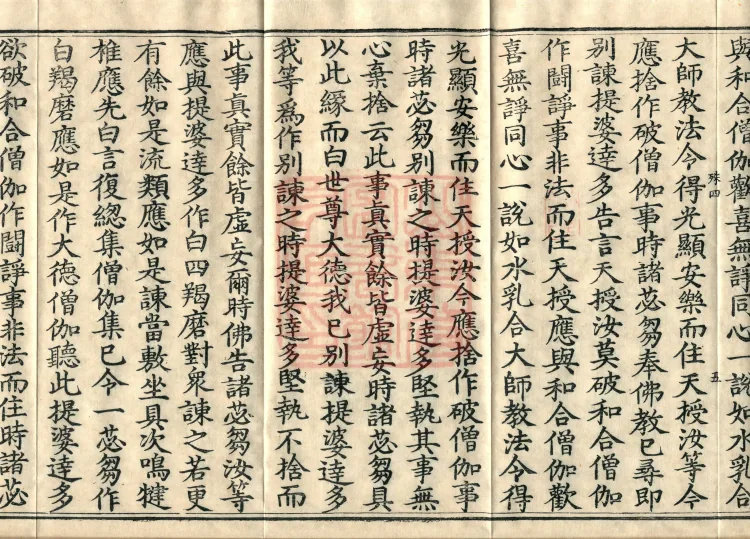 與和合僧伽歡喜無諍同心一說如水乳合
大師教法令得光顯安樂而住天授汝等今
殊四
五
應捨作破僧伽事時諸苾芻奉佛教已尋即
別諫提婆達多告言天授汝莫破和合僧伽
作鬪諍事非法而住天授應與和合僧伽歡
喜無諍同心一說如水乳合大師教法令得
光顯安樂而住天授汝今應捨作破僧伽事
時諸苾芻別諫之時提婆達多堅執其事無
心棄捨云此事真實餘皆虛妄時諸苾芻具
以此緣而白世尊大德我已別諫提婆達多
我等為作別諫之時提婆達多堅執不捨而
此事真實餘皆虛妄爾時佛告諸苾芻汝等
應與提婆達多作白四羯磨對眾諫之若更
有餘如是流類應如是諫當敷坐具次鳴揵
椎應先白言復總集僧伽集已令一苾芻作
白羯磨應如是作大德僧伽聽此提婆達多
欲破和合僧伽作鬪諍事非法而住時諸苾